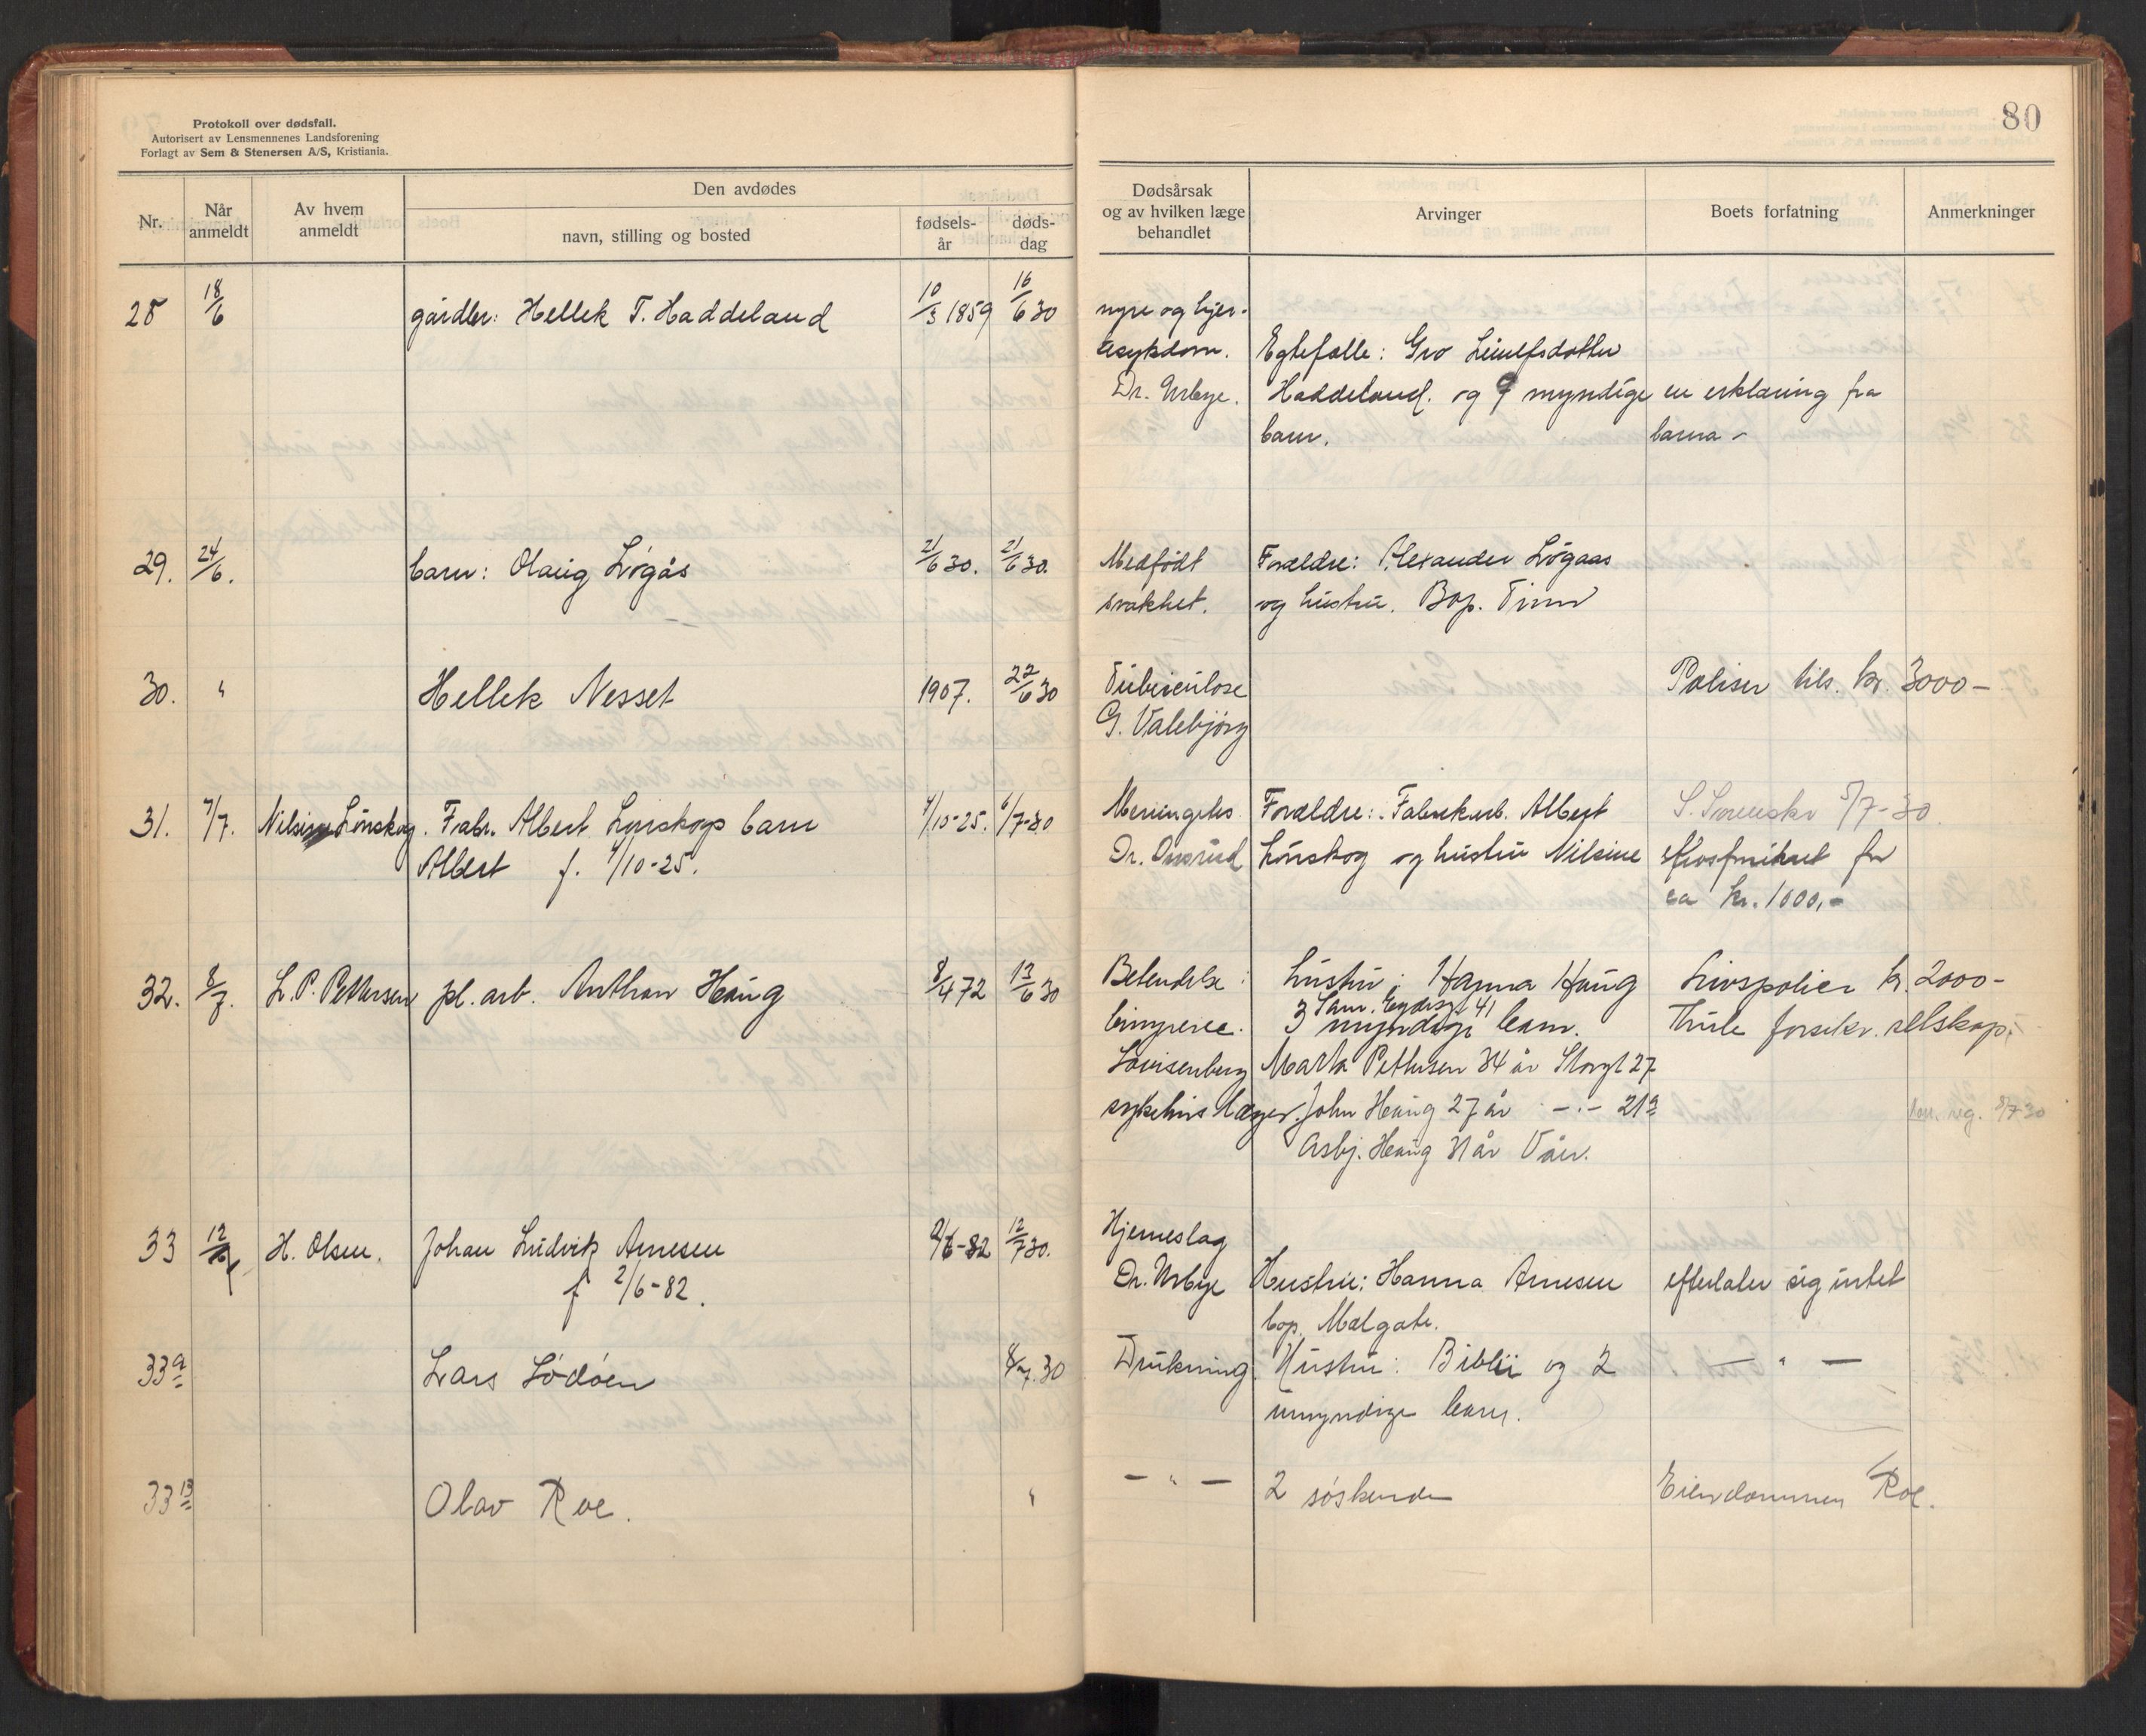 Protokoll over dødsfall.
Autorisert av Lensmennenes Landsforening
Forlagt av Sem & Stenersen A/S, Kristiania.
80
Nr.
Når anmeldt
Av hvem anmeldt
Den avdødes
navn, stilling og bosted
fødsels-år
døds-dag
Dødsårsak og av hvilken læge behandlet
Arvinger
Boets forfatning
Anmerkninger
28 18/6 gårdbr: Hellek T. Haddeland 10/3 1859 16/6 30 nyre og hjer-
tesykdom. Egtefælle: Gro Leiulfsdotter
Dr. Urbye. Haddeland. og 9 myndige en erklæring fra
barn. barna -
29. 24/6. barn: Olaug Løgås 21/6 30. 21/6 30. Medfødt Forældre: Alexander Løgaas
svakhet. og hustru. Bop. Tinn
30. " Hellek Nesset 1907. 22/6 30 Tuberculose Poliser tils. kr. 3000-
G. Valebjørg
31. 7/7. Nilsine Lönskog. Fabr. Albert Lönskogs barn 4/10-25. 6/7-30 Meningitis Forældre: Fabrikarb. Albert 5/7-30.
Albert f. 4/10-25. Dr. Lönskog og hustru Nilsine for
ca kr. 1000,-
32. 8/7. L. P. Pettersen pl. arb. Anthon Haug 8/4 72 13/6 30 Betendelse i hustru: Hanna Haug Livspolicer kr. 2000-
41
3 myndige barn. Thule forsikr. selskap.
Lovisenberg Marta Pettersen 34 år Storgt 27
sykehus læger. John Haug 27 år -.- 21a 8/7 30
Asbj. Haug 31 år Våer.
33 12/7 H. Olsen. Johan Ludvik Arnesen 2/6-82 12/7 30. Hjerneslag
f 2/6-82. Dr. Urbye Hustru: Hanna Arnesen efterlater sig intet
bop. Mælgate.
33a Lars Lødøen 8/7.30 Drukning Hustru: Birblii og 2 — " —
umyndige barn.
33b Olav Roe. " — " — 2 søskende Eiendommen Roe.